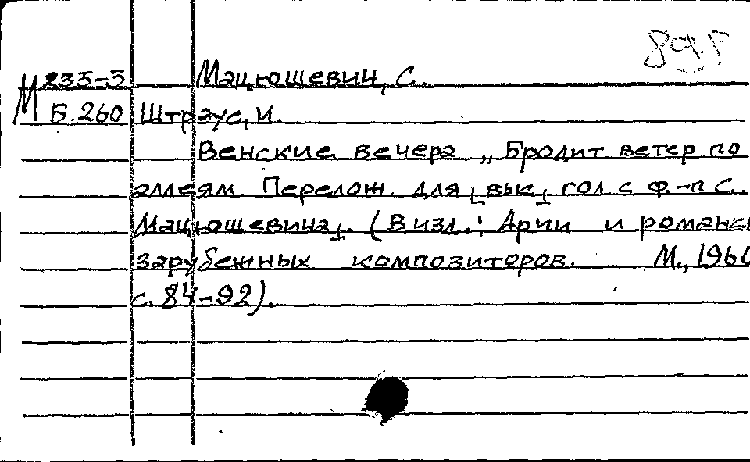 898
М 235-3 Мацюшевич, С.
Б.260 Штраус, И.
Венские вечера „Бродит ветер по
аллеям. Перелож. для [вык] гол с ф.-п С.
Мацюшевича]. (В изд.: Арии и романсы
зарубежных композиторов. М., 1960
с. 84-92).